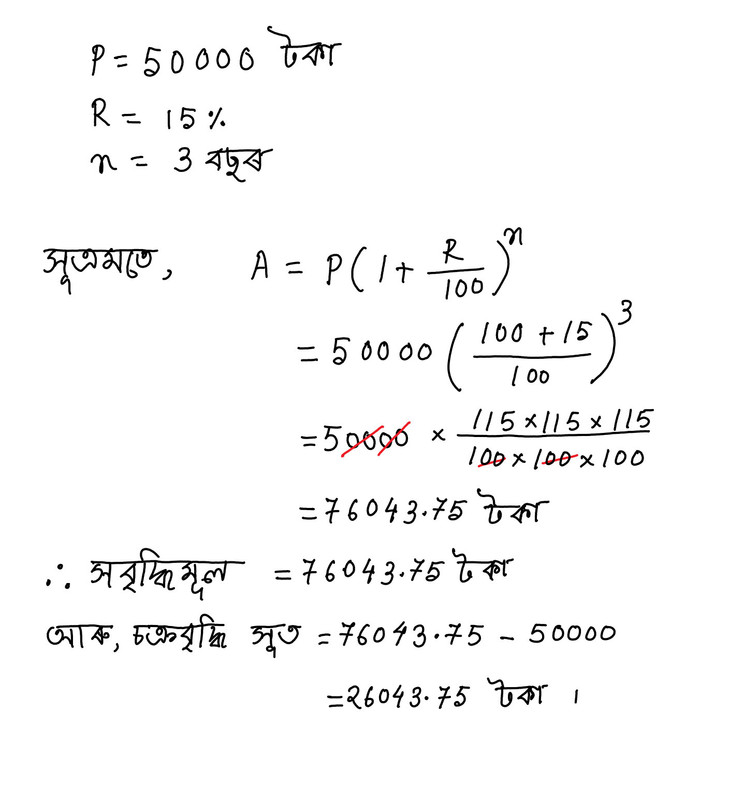 P = 50000 টকা
R = 15%
n = 3 বছৰ
সূত্ৰমতে, A = P(1 + R/100)^n
= 50000 ((100 + 15)/100)^3
= 50000 × (115 × 115 × 115)/(100 × 100 × 100)
= 76043.75 টকা
∴ সবৃদ্ধিমূল = 76043.75 টকা
আৰু, চক্ৰবৃদ্ধি সূত = 76043.75 - 50000
= 26043.75 টকা ।